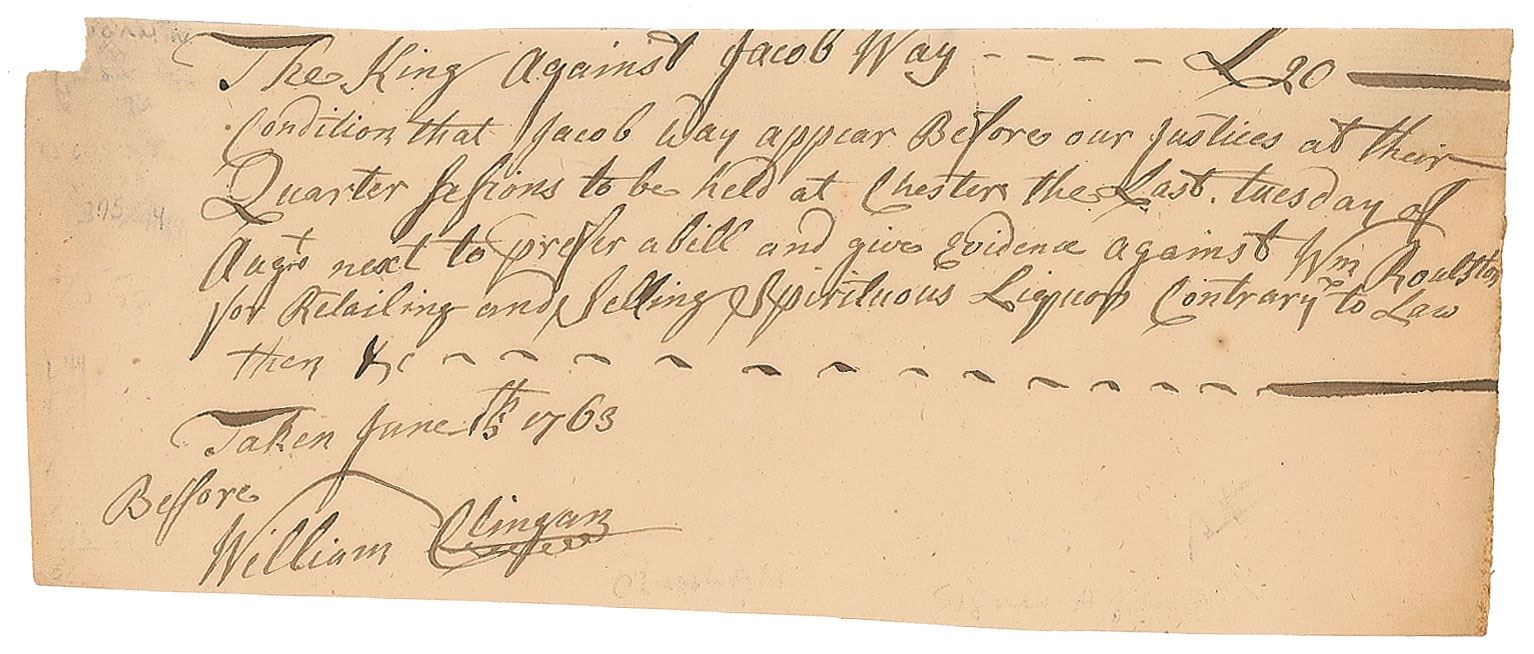 The King Against Jacob Way - - - - - £20
Condition that Jacob Way appear Before our Justices at their
Quarter Sessions to be held at Chester the Last tuesday of
Augst next to prefer a bill and give Evidence against Wm Roulston
for Retailing and Selling Spirituous Liquors Contrary to Law
then &c
Taken June 1763
Before
William Clingan